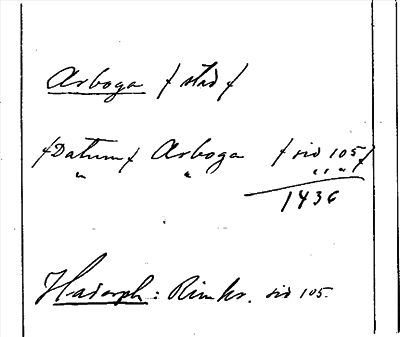 Arboga / stad /
/Datum/ Arboga / sid 105/
" " " " "
1436
Hadorph: Rimkr. sid 105.